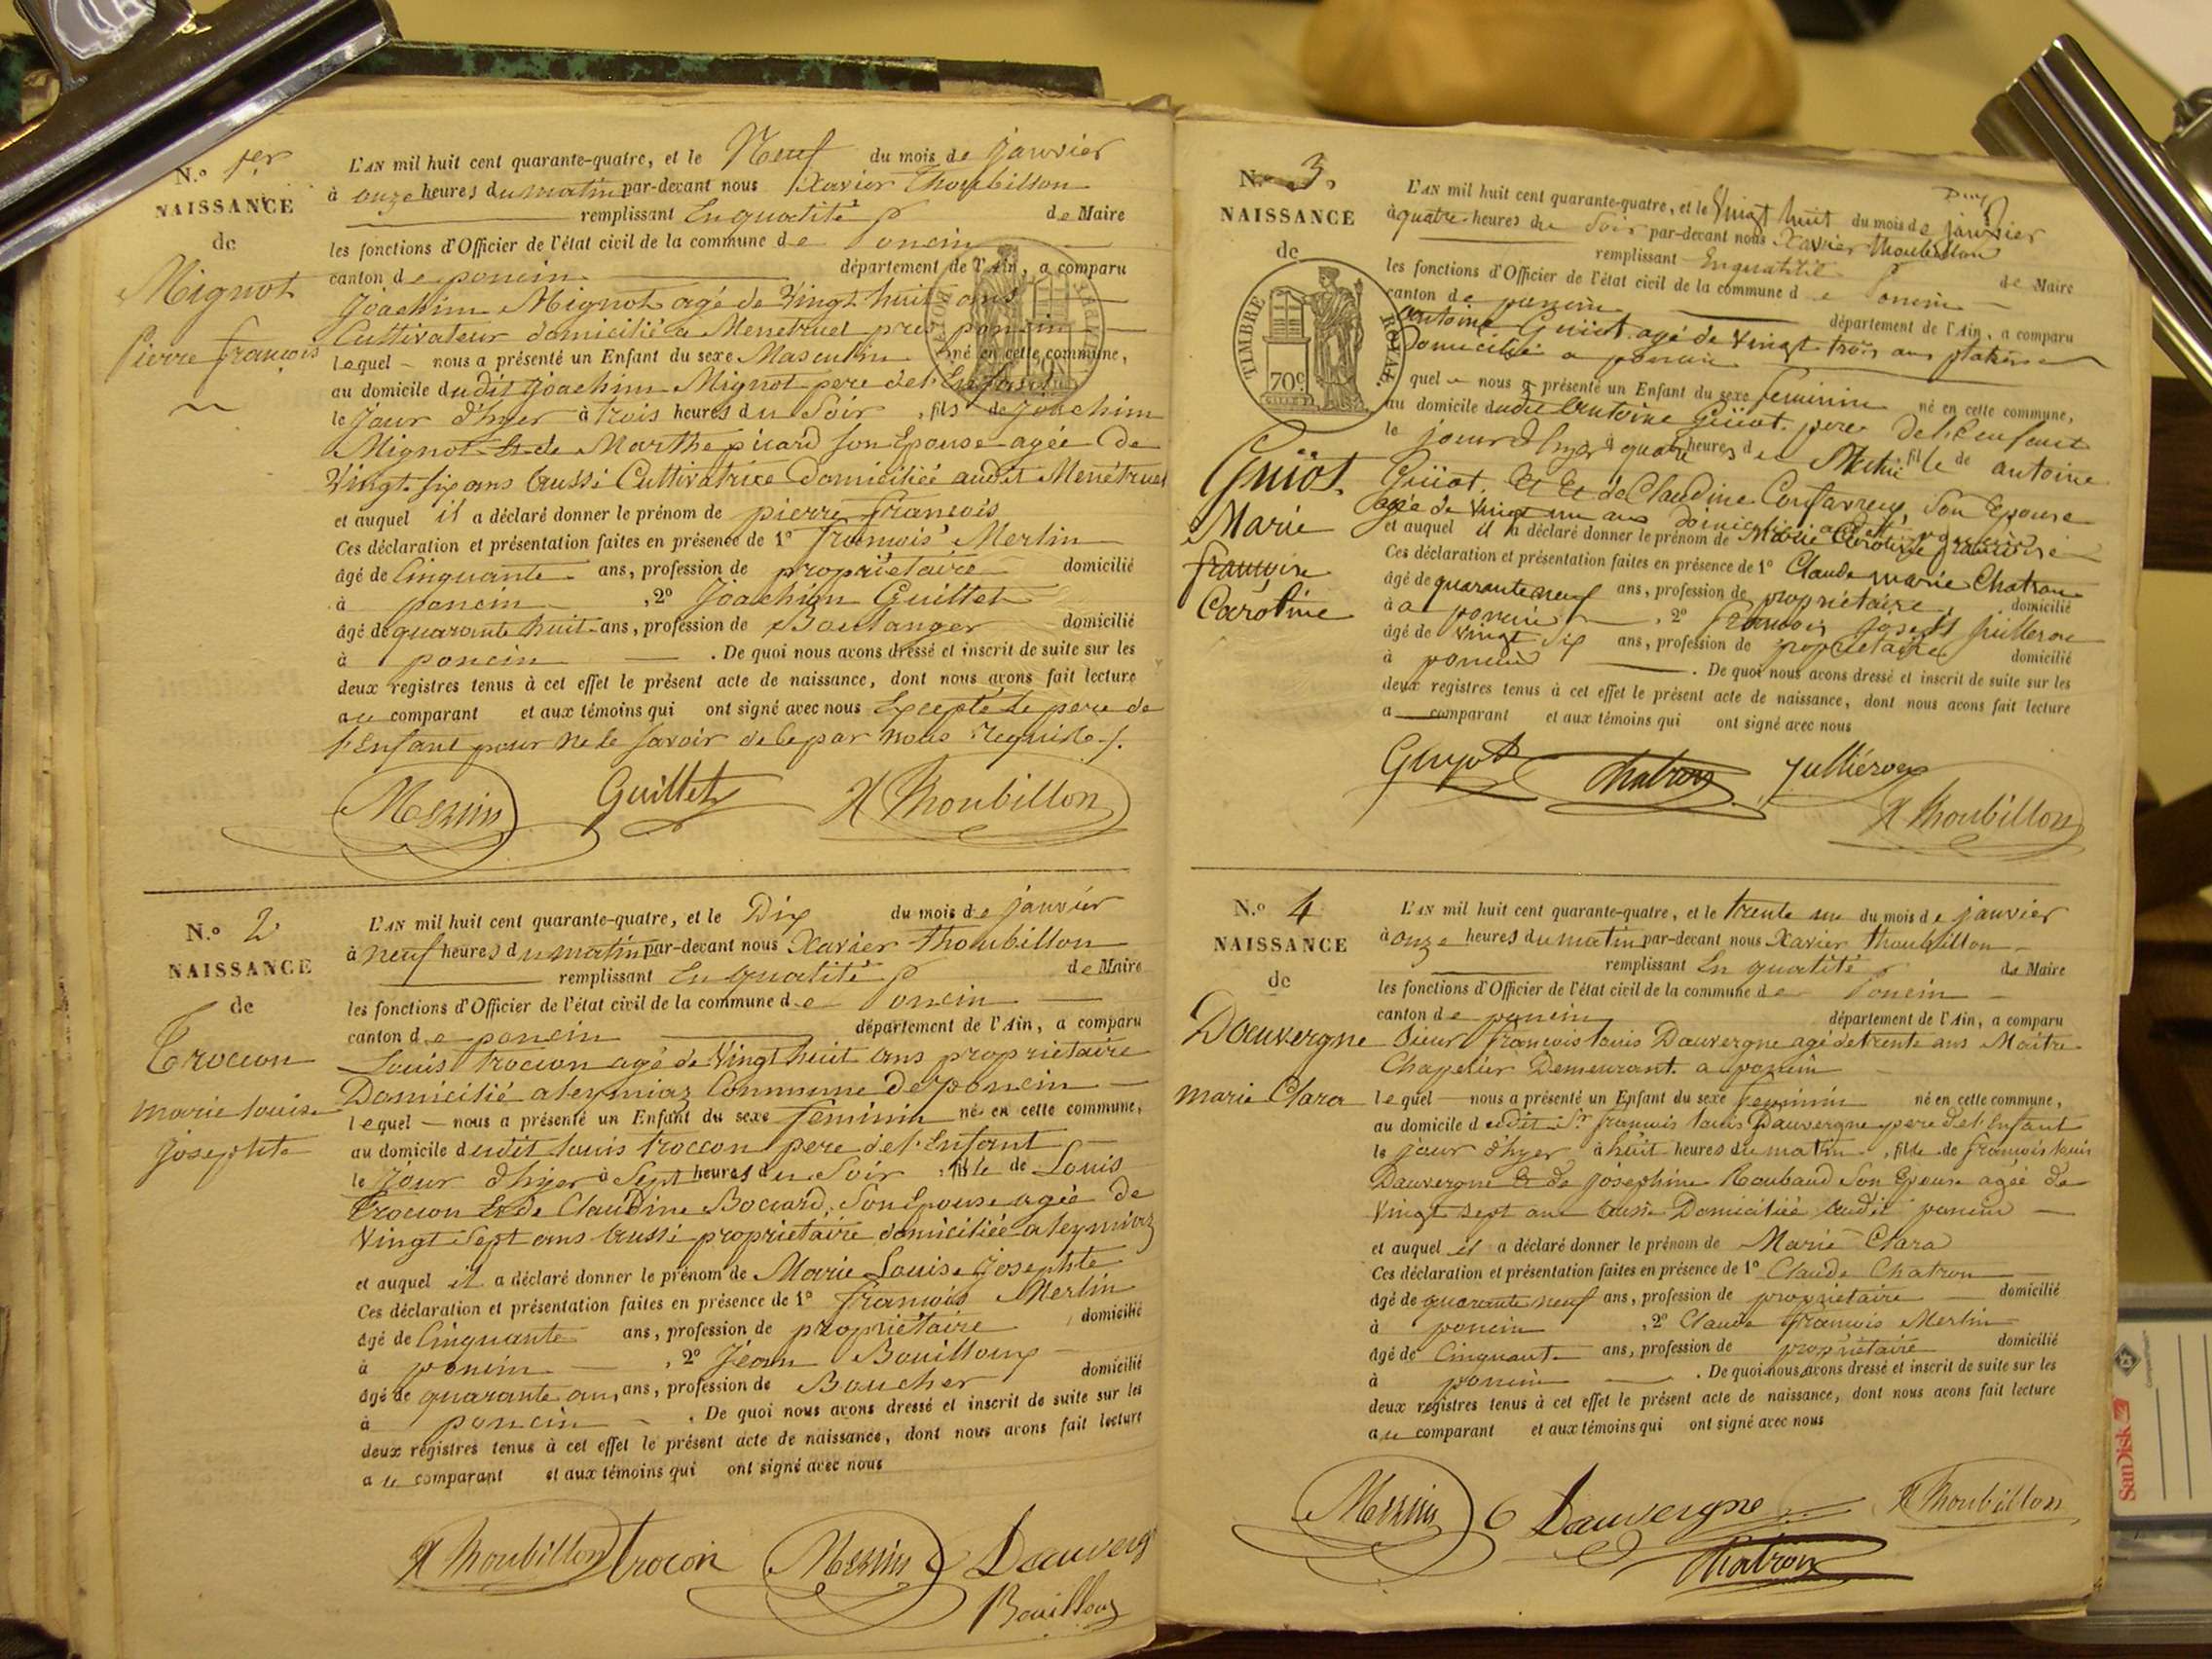 N.º 1er
NAISSANCE
de
Mignot
Pierre françois
L'AN mil huit cent quarante-quatre, et le Neuf du mois de janvier
à onze heures du matin par-devant nous Xavier Thoubillon
remplissant En qualité de Maire
les fonctions d'Officier de l'état civil de la commune de Poncin
canton de poncin département de l'Ain, a comparu
Joachim Mignot agé de Vingt huit ans
Cultivateur domicilié a Menetruel pres poncin
lequel nous a présenté un Enfant du sexe Masculin né en cette commune,
au domicile dudit Joachim Mignot pere de l'Enfant
le Jour d'hyer à trois heures du Soir, fils de Joachim
Mignot Et de Marthe picard Son Epouse agée de
Vingt six ans aussi Cultivatrice domiciliée audit Menetruel
et auquel il a déclaré donner le prénom de pierre françois
Ces déclaration et présentation faites en présence de 1º françois Merlin
âgé de Cinquante ans, profession de propriétaire domicilié
à poncin, 2º Joachim Guillet
âgé de quarante huit ans, profession de Boulanger domicilié
à poncin. De quoi nous avons dressé et inscrit de suite sur les
deux registres tenus à cet effet le présent acte de naissance, dont nous avons fait lecture
au comparant et aux témoins qui ont signé avec nous Excepté le pere de
l'Enfant pour ne le savoir de ce par nous requis
Merlin Guillet X Thoubillon
N.º 2
NAISSANCE
de
Troccon
marie louise
josephte
L'AN mil huit cent quarante-quatre, et le Dix du mois de janvier
à neuf heures du matin par-devant nous Xavier Thoubillon
remplissant En qualité de Maire
les fonctions d'Officier de l'état civil de la commune de Poncin
canton de poncin département de l'Ain, a comparu
Louis troccon agé de Vingt huit ans propriétaire
Domicilié a leymiaz Commune de poncin
lequel nous a présenté un Enfant du sexe féminin né en cette commune,
au domicile dudit louis troccon pere de l'Enfant
le Jour d'hyer à Sept heures du Soir, fille de Louis
Troccon Et de Claudine Boccard, Son Epouse agée de
Vingt Sept ans aussi propriétaire domiciliée a leymiaz
et auquel il a déclaré donner le prénom de Marie Louise Josephte
Ces déclaration et présentation faites en présence de 1º françois Merlin
âgé de Cinquante ans, profession de propriétaire domicilié
à poncin, 2º Jean Bouilloux
âgé de quarante ans, profession de Boucher domicilié
à poncin. De quoi nous avons dressé et inscrit de suite sur les
deux registres tenus à cet effet le présent acte de naissance, dont nous avons fait lecture
au comparant et aux témoins qui ont signé avec nous
X Thoubillon trocon Merlin Dauverg
Bouilloux
N.º 3
NAISSANCE
de
TIMBRE ROYAL
70c
Guiot
Marie
françoise
Caroline
L'AN mil huit cent quarante-quatre, et le Vingt huit du mois de janvier
à quatre heures du Soir par-devant nous Xavier Thoubillon
remplissant En qualité de Maire
les fonctions d'Officier de l'état civil de la commune de Poncin
canton de poncin département de l'Ain, a comparu
antoine Guiot agé de Vingt trois ans platrier
Domicilié a poncin
quel nous a présenté un Enfant du sexe feminin né en cette commune,
au domicile dudit antoine Guiot pere de l'Enfant
le jour d'hyer à quatre heures du Matin fille de antoine
Guiot, Et de Claudine Confavreux, Son Epouse
agée de Vingt un ans
et auquel il a déclaré donner le prénom de Marie Caroline françoise
Ces déclaration et présentation faites en présence de 1º Claude marie Chatron
âgé de quarante neuf ans, profession de propriétaire, domicilié
à poncin, 2º françois joseph juilleron
âgé de Vingt six ans, profession de propriétaire domicilié
à poncin. De quoi nous avons dressé et inscrit de suite sur les
deux registres tenus à cet effet le présent acte de naissance, dont nous avons fait lecture
a comparant et aux témoins qui ont signé avec nous
Guyot Chatron
X Thoubillon
N.º 4
NAISSANCE
de
Dauvergne
marie Clara
L'AN mil huit cent quarante-quatre, et le trente un du mois de janvier
à onze heures du matin par-devant nous Xavier Thoubillon
remplissant En qualité de Maire
les fonctions d'Officier de l'état civil de la commune de Poncin
canton de poncin département de l'Ain, a comparu
Sieur françois louis Dauvergne agé de trente ans Maitre
Chapelier Demeurant a poncin
lequel nous a présenté un Enfant du sexe feminin né en cette commune,
au domicile dudit Sr françois louis Dauvergne pere de l'Enfant
le jour d'hyer à huit heures du matin, fille de françois louis
Dauvergne Et de josephine Roubaud Son Epouse agée de
Vingt sept ans aussi Domiciliée audit poncin
et auquel il a déclaré donner le prénom de Marie Clara
Ces déclaration et présentation faites en présence de 1º Claude Chatron
âgé de quarante neuf ans, profession de propriétaire domicilié
à poncin, 2º Claude françois Merlin
âgé de Cinquante ans, profession de propriétaire domicilié
à poncin. De quoi nous avons dressé et inscrit de suite sur les
deux registres tenus à cet effet le présent acte de naissance, dont nous avons fait lecture
au comparant et aux témoins qui ont signé avec nous
Merlin Dauvergne X Thoubillon
Chatron
SanDisk